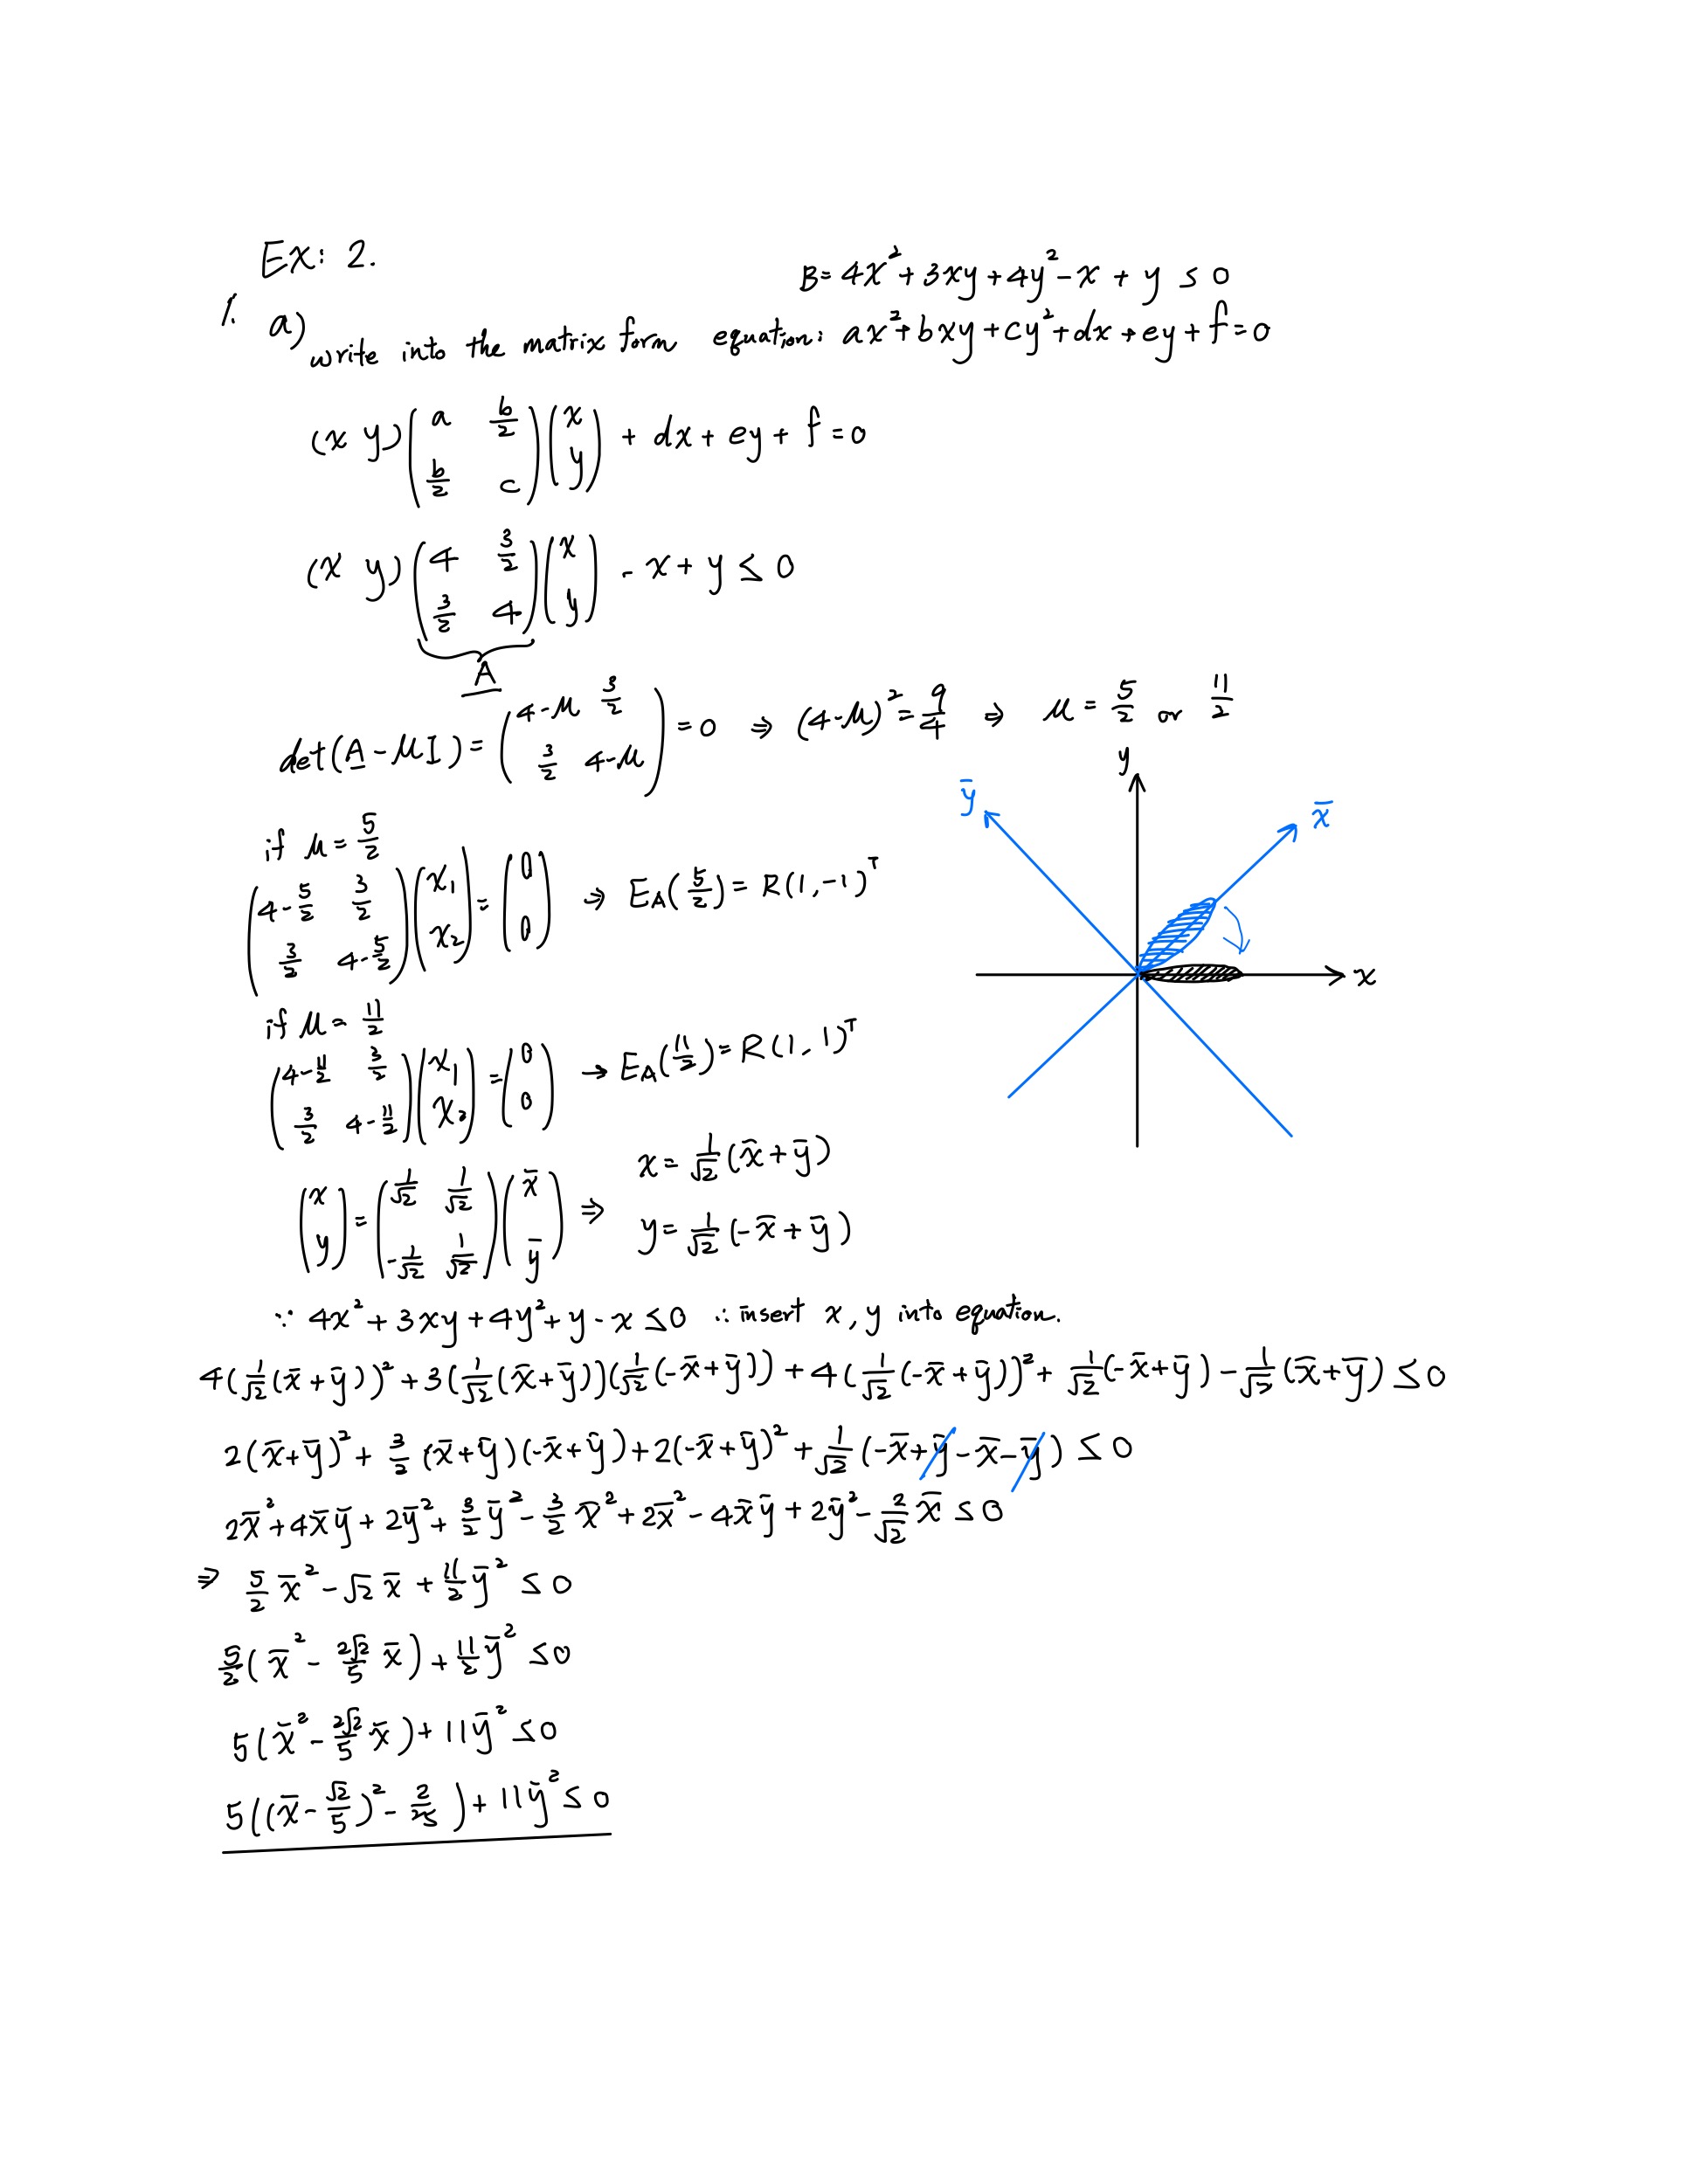 Ex: 2.
B = 4x² + 3xy + 4y² - x + y ≤ 0
1. a) write into the matrix form equation: ax² + bxy + cy² + dx + ey + f = 0
(x y) (a b/2; b/2 c) (x; y) + dx + ey + f = 0
(x y) (4 3/2; 3/2 4) (x; y) - x + y ≤ 0
A
det(A - μI) = (4-μ 3/2; 3/2 4-μ) = 0 ⇒ (4-μ)² = 9/4 ⇒ μ = 5/2 or 11/2
y
ȳ x̄
x
if μ = 5/2
(4-5/2 3/2; 3/2 4-5/2) (x₁; x₂) = (0; 0) ⇒ E_A(5/2) = R(1, -1)ᵀ
if μ = 11/2
(4-11/2 3/2; 3/2 4-11/2) (x₁; x₂) = (0; 0) → E_A(11/2) = R(1, 1)ᵀ
(x; y) = (1/√2 1/√2; -1/√2 1/√2) (x̄; ȳ) ⇒ x = 1/√2 (x̄ + ȳ)
y = 1/√2 (-x̄ + ȳ)
∵ 4x² + 3xy + 4y² + y - x ≤ 0 ∴ insert x, y into equation.
4(1/√2 (x̄ + ȳ))² + 3(1/√2 (x̄ + ȳ))(1/√2 (-x̄ + ȳ)) + 4(1/√2 (-x̄ + ȳ))² + 1/√2 (-x̄ + ȳ) - 1/√2 (x̄ + ȳ) ≤ 0
2(x̄ + ȳ)² + 3/2 (x̄ + ȳ)(-x̄ + ȳ) + 2(-x̄ + ȳ)² + 1/√2 (-x̄ + ȳ - x̄ - ȳ) ≤ 0
2x̄² + 4x̄ȳ + 2ȳ² + 3/2 ȳ² - 3/2 x̄² + 2x̄² - 4x̄ȳ + 2ȳ² - 2/√2 x̄ ≤ 0
⇒ 5/2 x̄² - √2 x̄ + 11/2 ȳ² ≤ 0
5/2 (x̄² - 2√2/5 x̄) + 11/2 ȳ² ≤ 0
5(x̄² - 2√2/5 x̄) + 11ȳ² ≤ 0
5((x̄ - √2/5)² - 2/25) + 11ȳ² ≤ 0